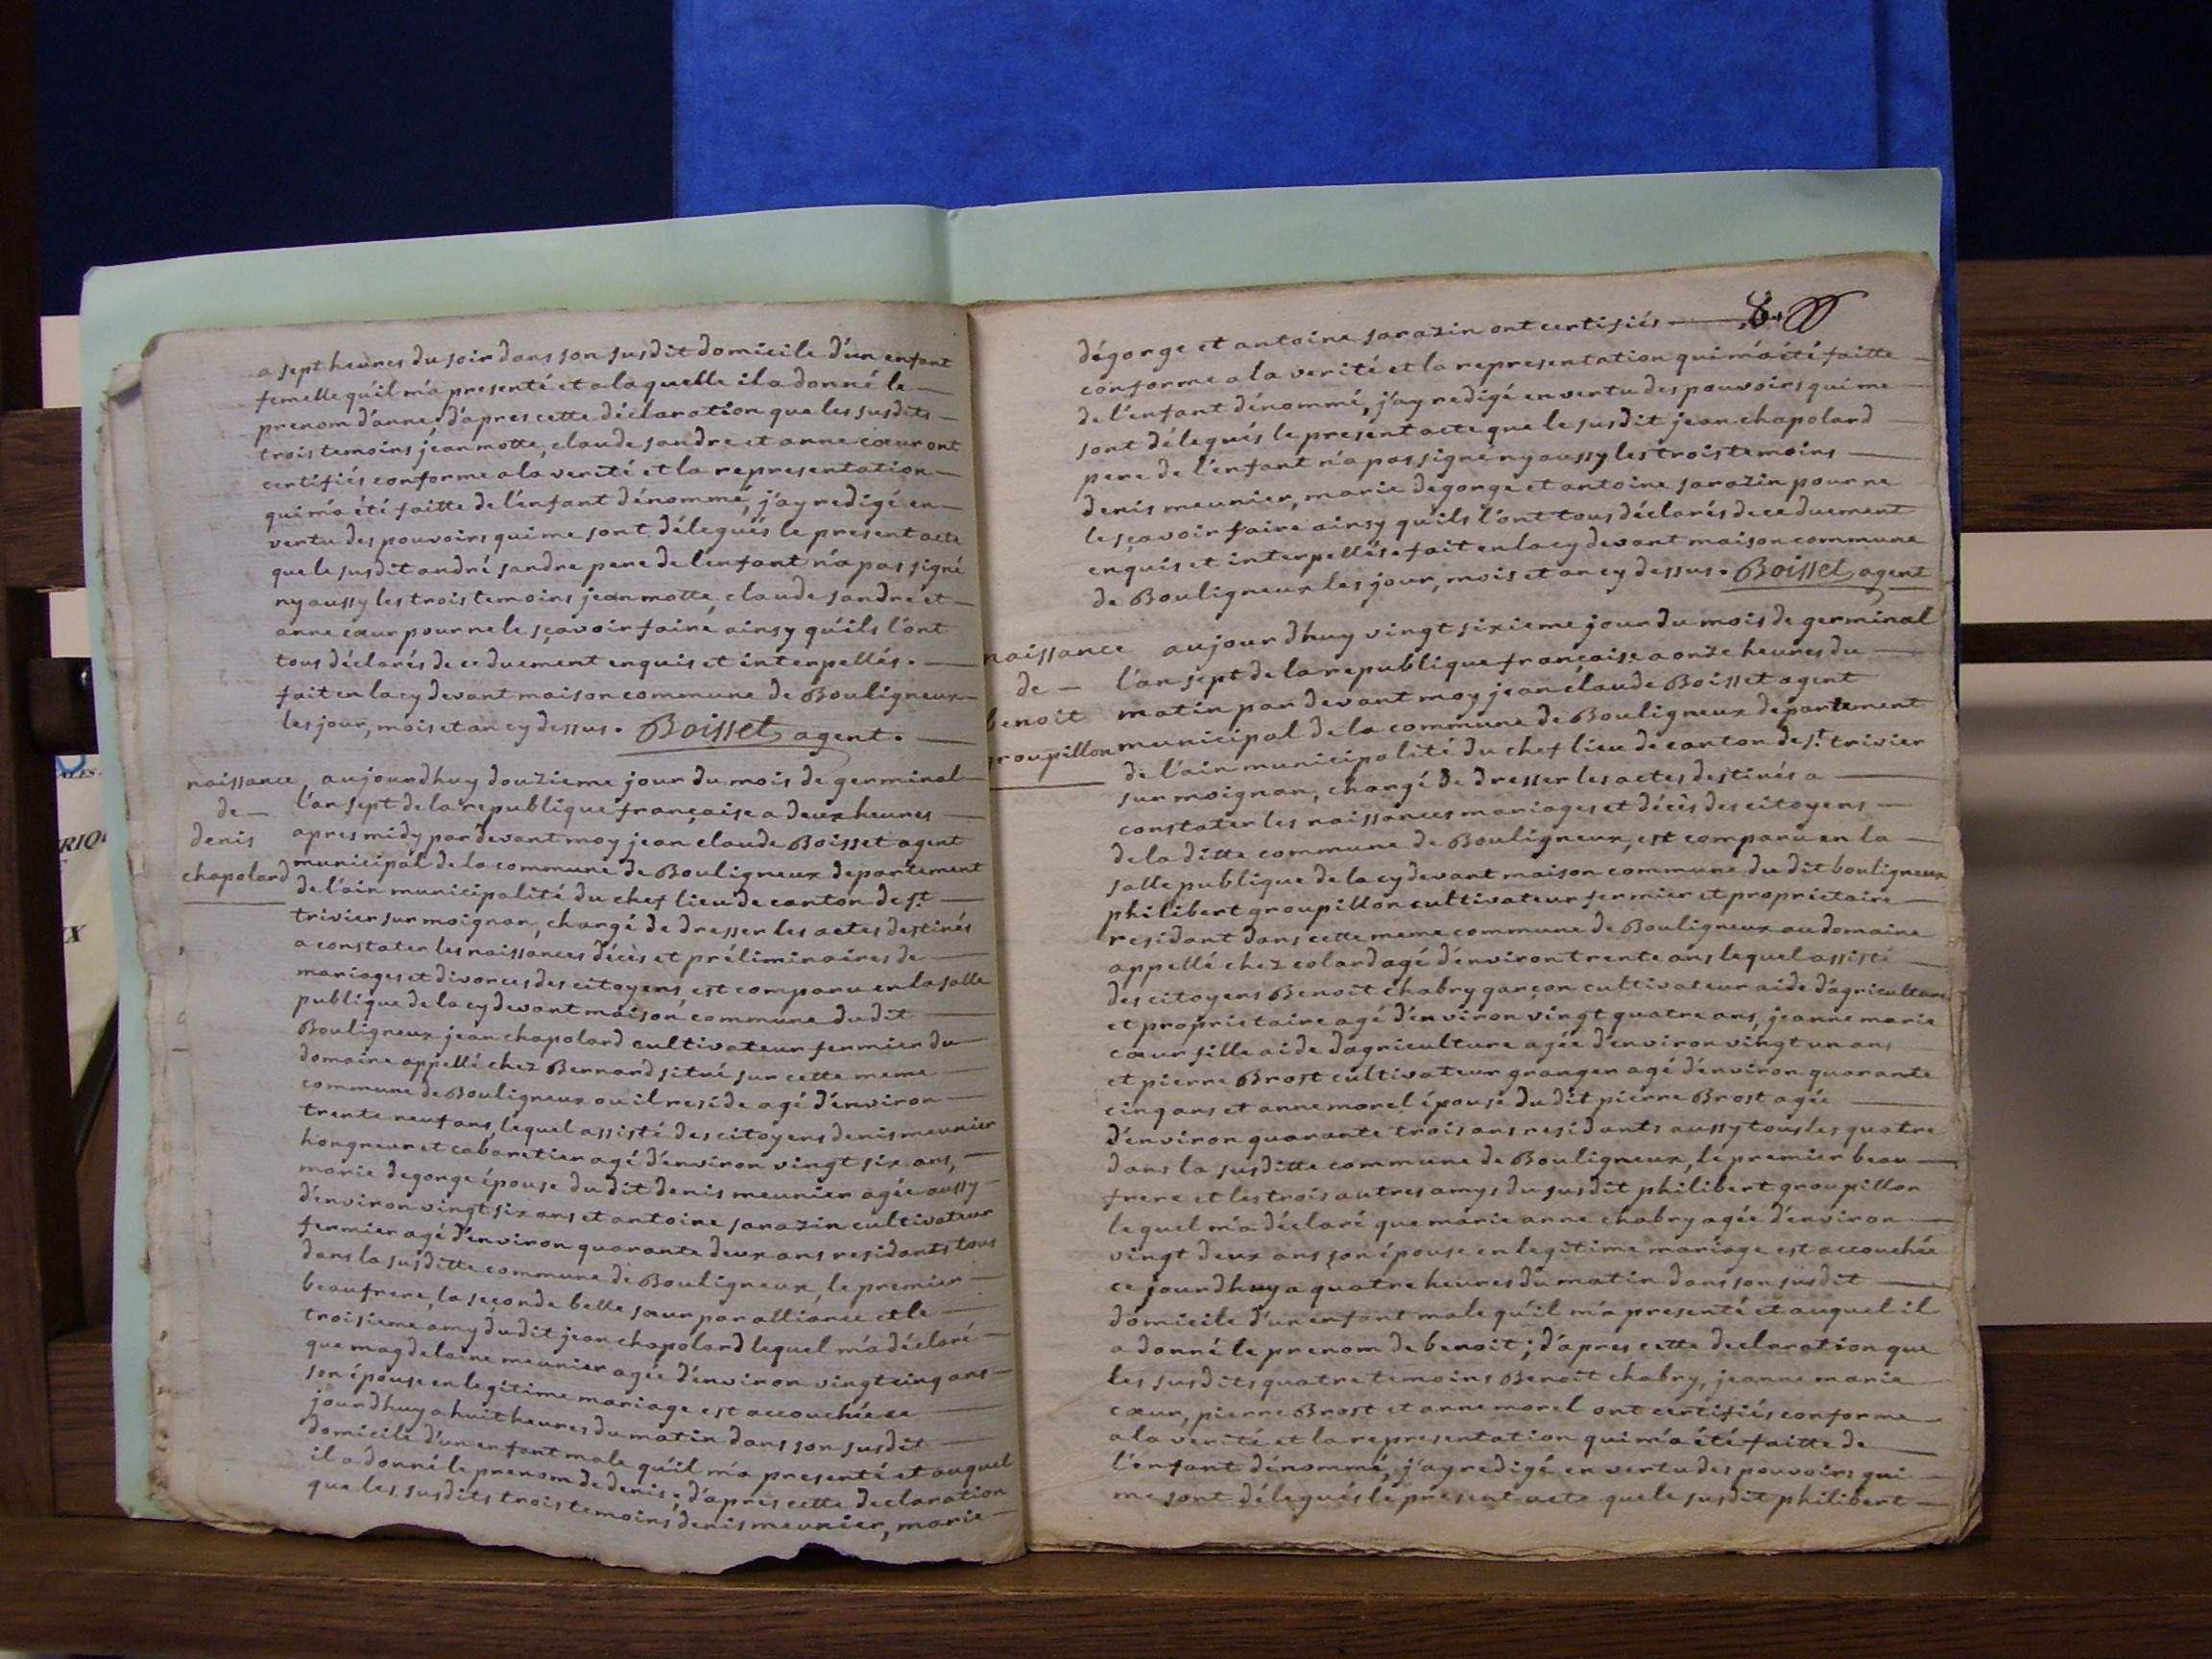 a sept heures du soir dans son susdit domicile d'un enfant
femelle qu'il m'a presenté et a laquelle il a donné le
prenom d'anne, d'apres cette déclaration que les susdits
trois temoins jean motte, claude sandre et anne cœur ont
certifiés conforme a la verité et la representation
qui m'a été faitte de l'enfant dénommé, j'ay redigé en
vertu des pouvoirs qui me sont délegués le present acte
que le susdit andré sandre pere de l'enfant n'a pas signé
ny aussy les trois temoins jean motte, claude sandre et
anne cœur pour ne le sçavoir faire ainsy qu'ils l'ont
tous déclarés de ce duement enquis et interpellés.
fait en la cy devant maison commune de Bouligneux
les jour, mois et an cy dessus. Boisset agent.
naissance
de
denis
chapolard
aujourdhuy douzieme jour du mois de germinal
l'an sept de la republique française a deux heures
apres midy par devant moy jean claude Boisset agent
municipal de la commune de Bouligneux departement
de l'ain municipalité du chef lieu de canton de st.
trivier sur moignan, chargé de dresser les actes destinés
a constater les naissances décès et préliminaires de
mariages et divorces des citoyens est comparu en la salle
publique de la cy devant maison commune du dit
Bouligneux jean chapolard cultivateur fermier du
domaine appellé chez Bernard situé sur cette meme
commune de Bouligneux ou il reside agé d'environ
trente neuf ans, lequel assisté des citoyens denis meunier
hongreur et cabaretier agé d'environ vingt six ans,
marie degorge épouse du dit denis meunier agée aussy
d'environ vingt six ans et antoine sarazin cultivateur
fermier agé d'environ quarante deux ans residants tous
dans la susditte commune de Bouligneux, le premier
beaufrere, la seconde belle sœur par alliance et le
troisieme amy du dit jean chapolard lequel m'a déclaré
que magdelaine meunier agée d'environ vingt cinq ans
son épouse en legitime mariage est accouchée ce
jourdhuy a huit heures du matin dans son susdit
domicile d'un enfant male qu'il m'a presenté et auquel
il a donné le prenom de denis; d'apres cette declaration
que les susdits trois temoins denis meunier, marie
dégorge et antoine sarazin ont certifiés
conforme a la verité et la representation qui m'a été faitte
de l'enfant dénommé, j'ay redigé en vertu des pouvoirs qui me
sont délegués le present acte que le susdit jean chapolard
pere de l'enfant n'a pas signé ny aussy les trois temoins
denis meunier, marie degorge et antoine sarazin pour ne
le sçavoir faire ainsy qu'ils l'ont tous déclarés de ce duement
enquis et interpellés. fait en la cy devant maison commune
de Bouligneux les jour, mois et an cy dessus. Boisset agent
naissance
de
benoit
groupillon
aujourdhuy vingt sixieme jour du mois de germinal
l'an sept de la republique française a onze heures du
matin par devant moy jean claude Boisset agent
municipal de la commune de Bouligneux departement
de l'ain municipalité du chef lieu de canton de st. trivier
sur moignan, chargé de dresser les actes destinés a
constater les naissances mariages et décès des citoyens
de la ditte commune de Bouligneux, est comparu en la
salle publique de la cy devant maison commune du dit bouligneux
philibert groupillon cultivateur fermier et proprietaire
residant dans cette meme commune de Bouligneux au domaine
appellé chez colard agé d'environ trente ans lequel assisté
des citoyens Benoit chabry garçon cultivateur aide d'agriculture
et proprietaire agé d'environ vingt quatre ans, jeanne marie
cœur fille aide d'agriculture agée d'environ vingt un ans
et pierre Brost cultivateur granger agé d'environ quarante
cinq ans et anne morel épouse du dit pierre Brost agée
d'environ quarante trois ans residants aussy tous les quatre
dans la susditte commune de Bouligneux, le premier beau
frere et les trois autres amys du susdit philibert groupillon
lequel m'a déclaré que marie anne chabry agée d'environ
vingt deux ans son épouse en legitime mariage est accouchée
ce jourdhuy a quatre heures du matin dans son susdit
domicile d'un enfant male qu'il m'a presenté et auquel il
a donné le prenom de benoit; d'apres cette declaration que
les susdits quatre temoins Benoit chabry, jeanne marie
cœur, pierre Brost et anne morel ont certifiés conforme
a la verité et la representation qui m'a été faitte de
l'enfant dénommé, j'ay redigé en vertu des pouvoirs qui
me sont délegués le present acte que le susdit philibert